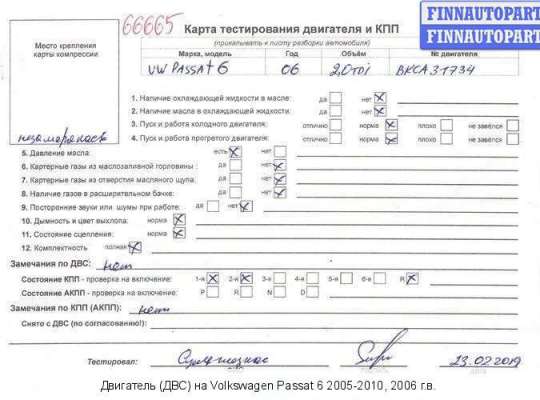 66665 Карта тестирования двигателя и КПП
FINNAUTOPART
FINNAUTOPART
(прикалывать к листу разборки автомобиля)
Место крепления
карты компрессии
Марка, модель Год Объём № двигателя
VW PASSAT 6 06 2,0TDI BKCA31734
1. Наличие охлаждающей жидкости в масле: да нет
2. Наличие масла в охлаждающей жидкости: да нет
3. Пуск и работа холодного двигателя: отлично норма плохо не завёлся
4. Пуск и работа прогретого двигателя: отлично норма плохо не завёлся
5. Давление масла: есть нет
6. Картерные газы из маслозаливной горловины: да нет
7. Картерные газы из отверстия масляного щупа: да нет
8. Наличие газов в расширительном бачке: да нет
9. Посторонние звуки или шумы при работе: да нет
10. Дымность и цвет выхлопа: норма
11. Состояние сцепления: норма
12. Комплектность полная
Замечания по ДВС: нет
Состояние КПП - проверка на включение: 1-я 2-я 3-я 4-я 5-я 6-я R
Состояние АКПП - проверка на включение: P R N D
Замечания по КПП (АКПП): нет
Снято с ДВС (по согласованию!):
Тестировал: 23.02.2019
Двигатель (ДВС) на Volkswagen Passat 6 2005-2010, 2006 г.в.